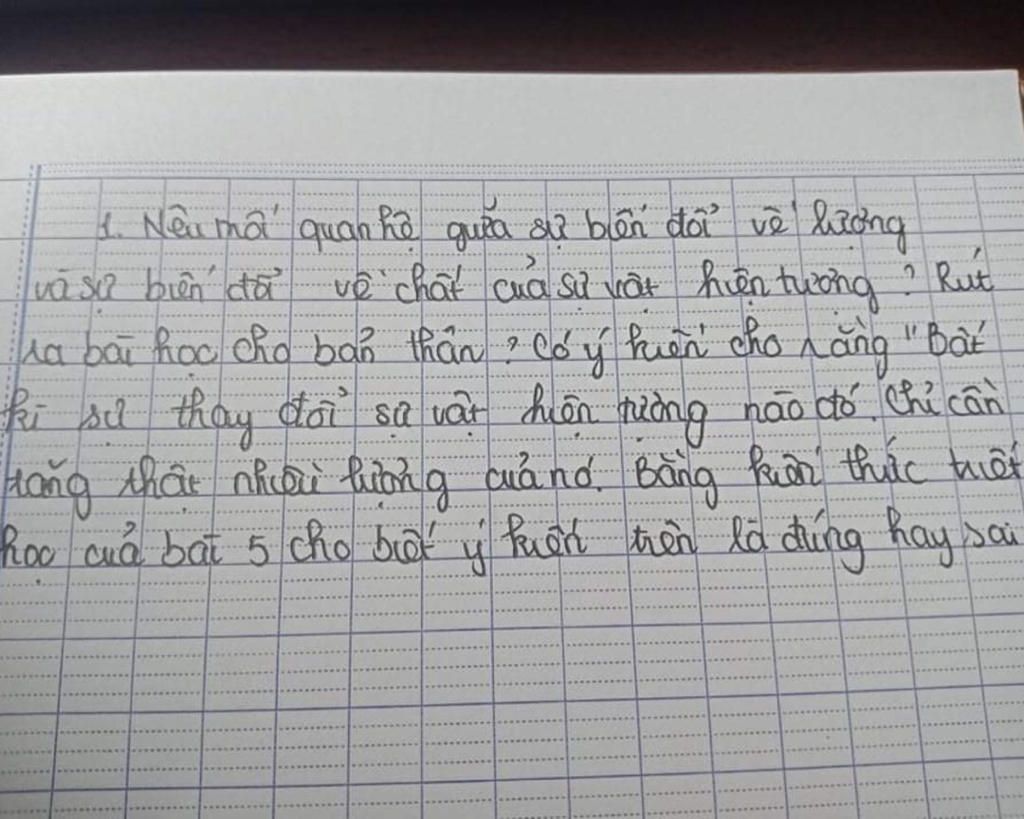 1. Nêu mối quan hệ giữa sự biến đổi về lượng
và sự biến đổi về chất của sự vật hiện tượng? Rút
ra bài học cho bản thân? Có ý kiến cho rằng "Bất
kì sự thay đổi sự vật hiện tượng nào đó. Chỉ cần
tăng thật nhiều lượng của nó. Bằng kiến thức triết
học của bài 5 cho biết ý kiến trên là đúng hay sai